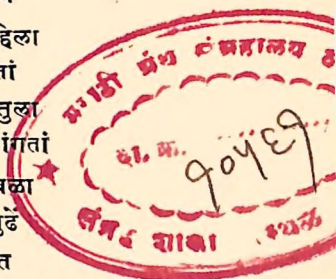 हिला
तां
तुला
ांगतां
वळा
ुढें
त
मराठी ग्रंथ संग्रहालय
दा. क्र.
१०५६१
शाखा
स्थळ